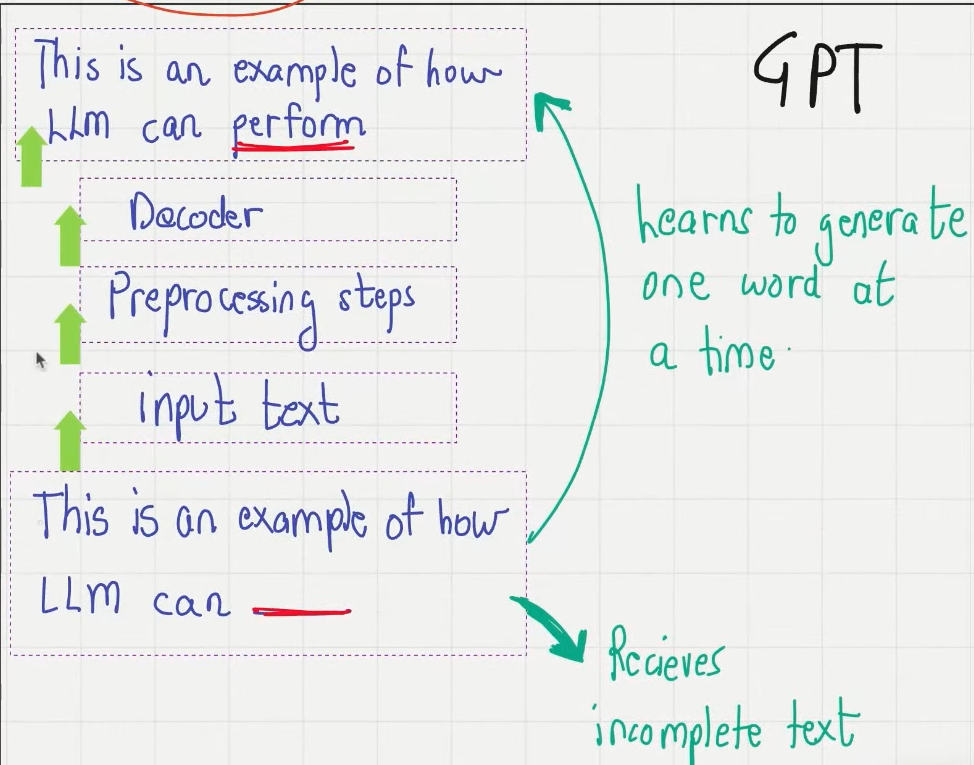 This is an example of how
LLm can perform
Decoder
Preprocessing steps
input text
This is an example of how
LLM can
GPT
Learns to generate
one word at
a time.
Recieves
incomplete text